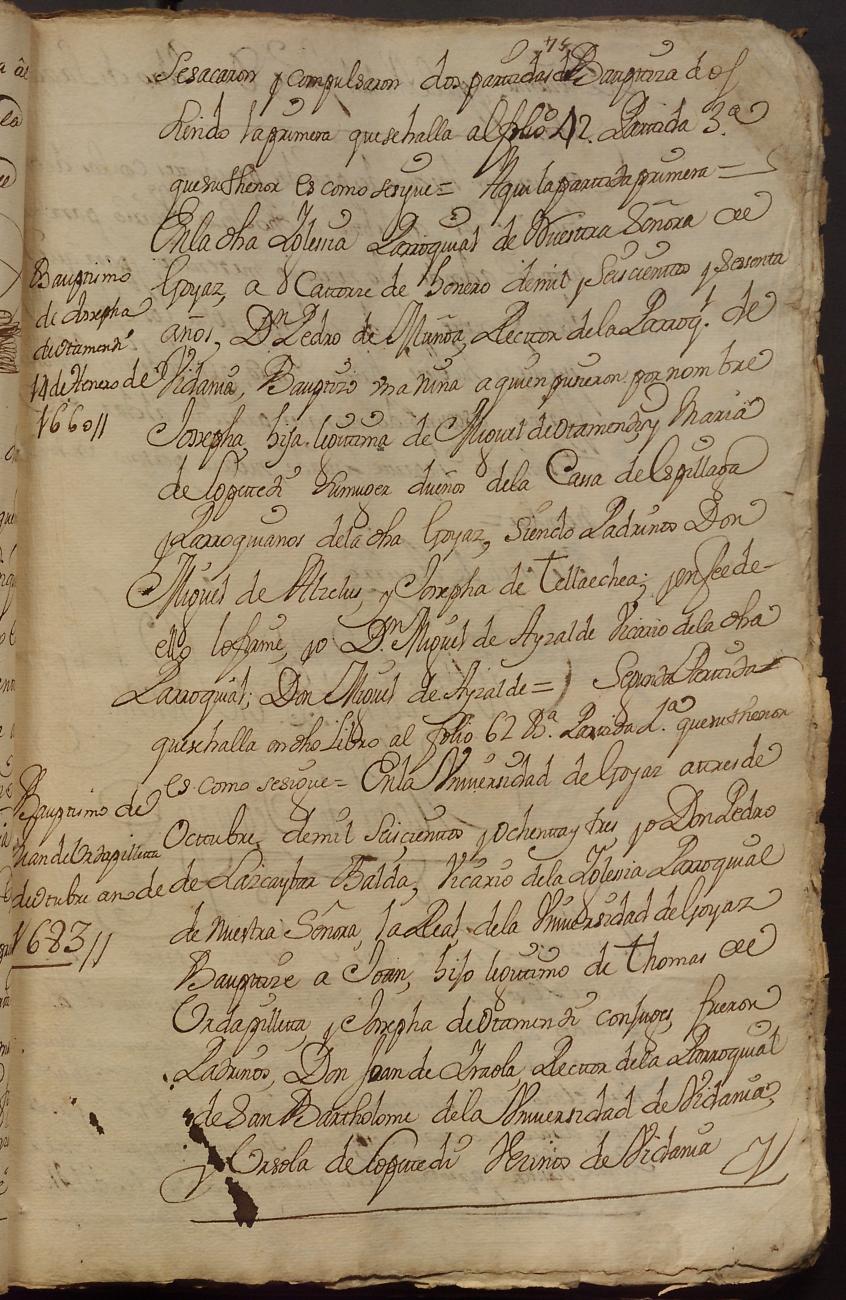 75
Sesacaron y compulsaron dos partidas de Bauptiza de of
hendo la primera que se halla al folio 42. Partida 3.ª
que su thenor es como sesigue = Aqui la partida primera =
En la dha Iglesia Parroquial de Nuestra Señora de
Goyaz, a Catorze de henero de mil y Seiscientos y sesenta
años, Dn Pedro de Muñoa, Rector de la Parroql. de
Vidania, Bauptizo vna niña a quien pusieron por nombre
Josepha, hija lixitima de Miguel de Otamendi, y Maria
de Goputedi su muger dueños de la Cassa de Espillaga
y Parroquianos de la dha Goyaz, Siendo Padrinos Don
Miguel de Alzelus, y Josepha de Tellaechea; y en fee de
ello lo firme, yo Dn Miguel de Ayzalde Vicario de la dha
Parroquial; Don Miguel de Ayzalde = Segunda Partida =
que se halla en dho Libro al folio 62 Bª. Partida 1.ª que su thenor
es como sesigue = En la Vniversidad de Goyaz a tres de
Octtubre, de mil Seiscientos y ochenta y tres, yo Don Pedro
de Lazcaybar Balda, Vicario de la Iglesia Parroquial
de Nuestra Señora, la Real de la Vniversidad de Goyaz
Bauptize a Joan, hijo lixitimo de Thomas de
Vrdapilleta, y Josepha de Otamendi consortes, fueron
Padrinos, Don Juan de Yraola, Rector de la Parroquial
de San Bartholome de la Vniversidad de Vidania,
y Vrsola de Goputedi Vezinos de Vidania
Bauptismo
de Josepha
de Otamendi
14 de Henero de
1660//
Bauptismo de
Juan de Vrdapilleta
de Octubre año de
1683//